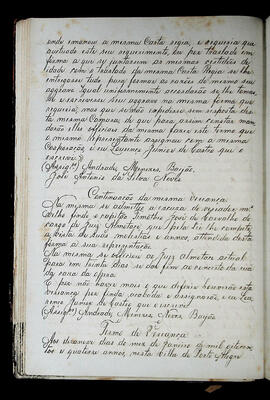 onde emanou a mesma Carta regia, e requeria que
autuado este seu requerimento, seu por traslado em
forma a que se juntarem as mesmas certidões de
idade com o traslado da mesma Carta Regia se lhe
entregasse tudo para formar as razões de mesmo seu
aggravo Igual uniformemente accordarão se lhe tomas
se e escrevesse seu aggravo na mesma forma que
requeria, mas que subisse
ta mesma Camara, de que para assim constar man
darão elles officiaes da mesma fazer este termo que
o mesmo Representante assignou com a mesma
Corporação e eu Lourenço Junior de Castro que o
escrevi.
(Assigº) Andrade, Menezes, Bayão,
José Antonio da Silva Neves
Continuação da mesma Vereança
Na mesma se admittio a escusa de vereador, ma
Coelho findo o capitão Timótheo José de Carvalho do
cargo de Juiz Almotacé, que pela Lei lhe competia
á vista de suas molestias e annos, attendida desta
forma a sua representação
Na mesma se officiou ao Juiz almotacé actual
para em trinta dias se dar fim ao concerto da rua
da casa da opera
E por não haver mais o que deferir houverão esta
Vereança por finda acabada e assignarão, e eu Lou
renço Junior de Castro que o escrevi
(Assigº) Andrade Menezes Neves Bayão
Termo de Vereança
Aos dezanove dias do mez de Janeiro de mil oitocen
tos e quatorze annos, nesta Villa de Porto Alegre